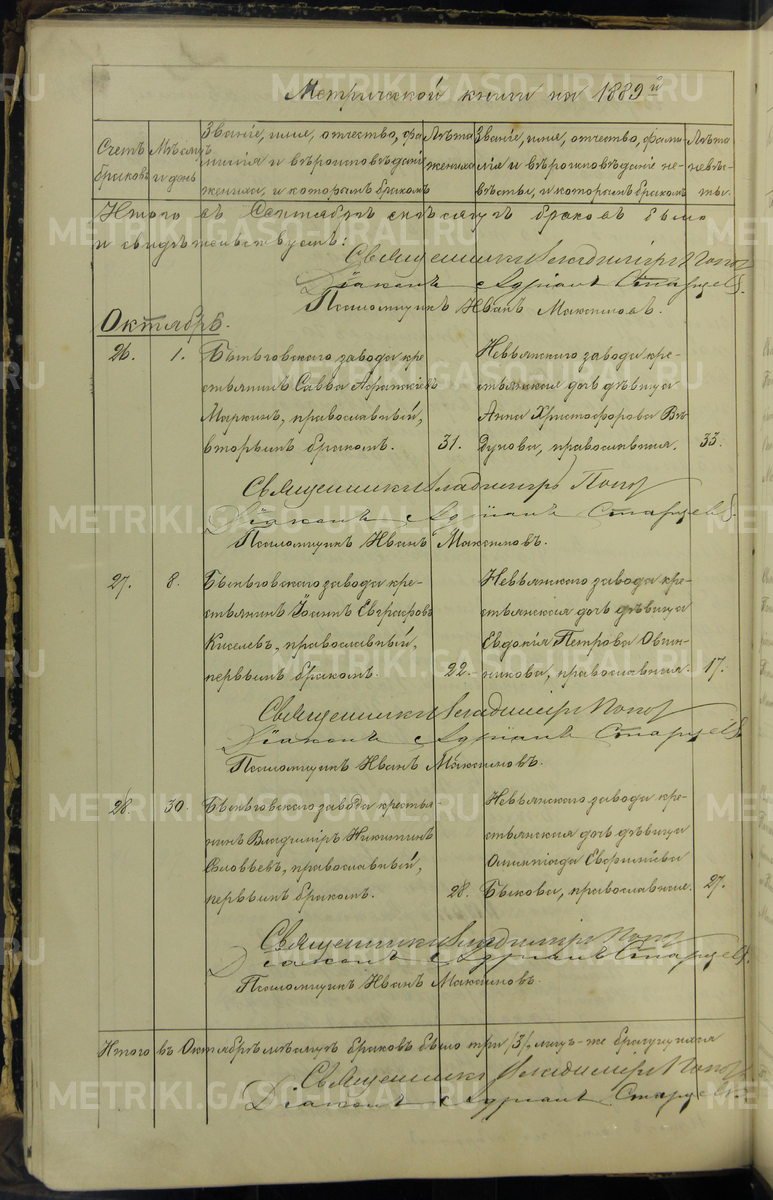 Метрической книги на 1889й
Счетъ браковъ
Мѣсяцъ и день
Званіе, имя, отчество, фамилія и вѣроисповѣданіе жениха, и которымъ бракомъ
Лѣта жениха
Званіе, имя, отчество, фамилія и вѣроисповѣданіе невѣсты, и которымъ бракомъ
Лѣта невѣсты.
Итого въ Сентябрѣ мѣсяцѣ браковъ было
и свидѣтельствуемъ:
Священникъ Владиміръ Попов
Діаконъ Адріанъ Старцевъ.
Псаломщикъ Иванъ Максимовъ.
Октябрь.
26. 1.
завода кре-
стьянинъ Савва
Маркинъ, православный,
вторымъ бракомъ. 31.
Невьянскаго завода кре-
стьянская дочь дѣвица
Анна Христофорова Вѣ-
дунова, православная. 33.
Священникъ Владиміръ Попов
Діаконъ Адріанъ Старцевъ.
Псаломщикъ Иванъ Максимовъ.
27. 8.
завода кре-
стьянинъ Іоаннъ Евграфовъ
Киселевъ, православный,
первымъ бракомъ. 22.
Невьянскаго завода кре-
стьянская дочь дѣвица
Евдокія Петрова Овчин-
никова, православная. 17.
Священникъ Владиміръ Попов
Діаконъ Адріанъ Старцевъ.
Псаломщикъ Иванъ Максимовъ.
28. 30.
завода крестья-
нинъ Владиміръ Никитинъ
Соловьевъ, православный,
первымъ бракомъ. 28.
Невьянскаго завода кре-
стьянская дочь дѣвица
Олимпіада Евфиміева
Быкова, православная. 27.
Священникъ Владиміръ Попов
Діаконъ Адріанъ Старцевъ.
Псаломщикъ Иванъ Максимовъ.
Итого въ Октябрѣ мѣсяцѣ браковъ было три /3/
Священникъ Владиміръ Попов
Діаконъ Адріанъ Старцевъ.
METRIKI.GASO-URAL.RU